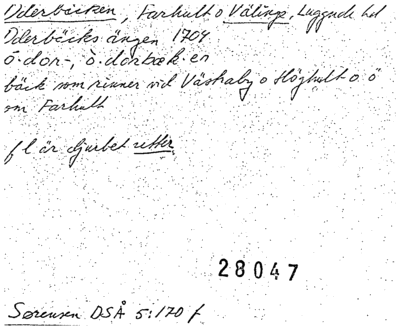 Oderbäcken, Farhult o Välinge, Luggude hd
Oderbäcks ängen 1704
ò·dor-, ò·dorbæk·en
bäck som rinner vid Väskaby o Höghult o ö
om Farhult
f l är djurbet utter
28047
Sørensen DSÅ 5:170 f